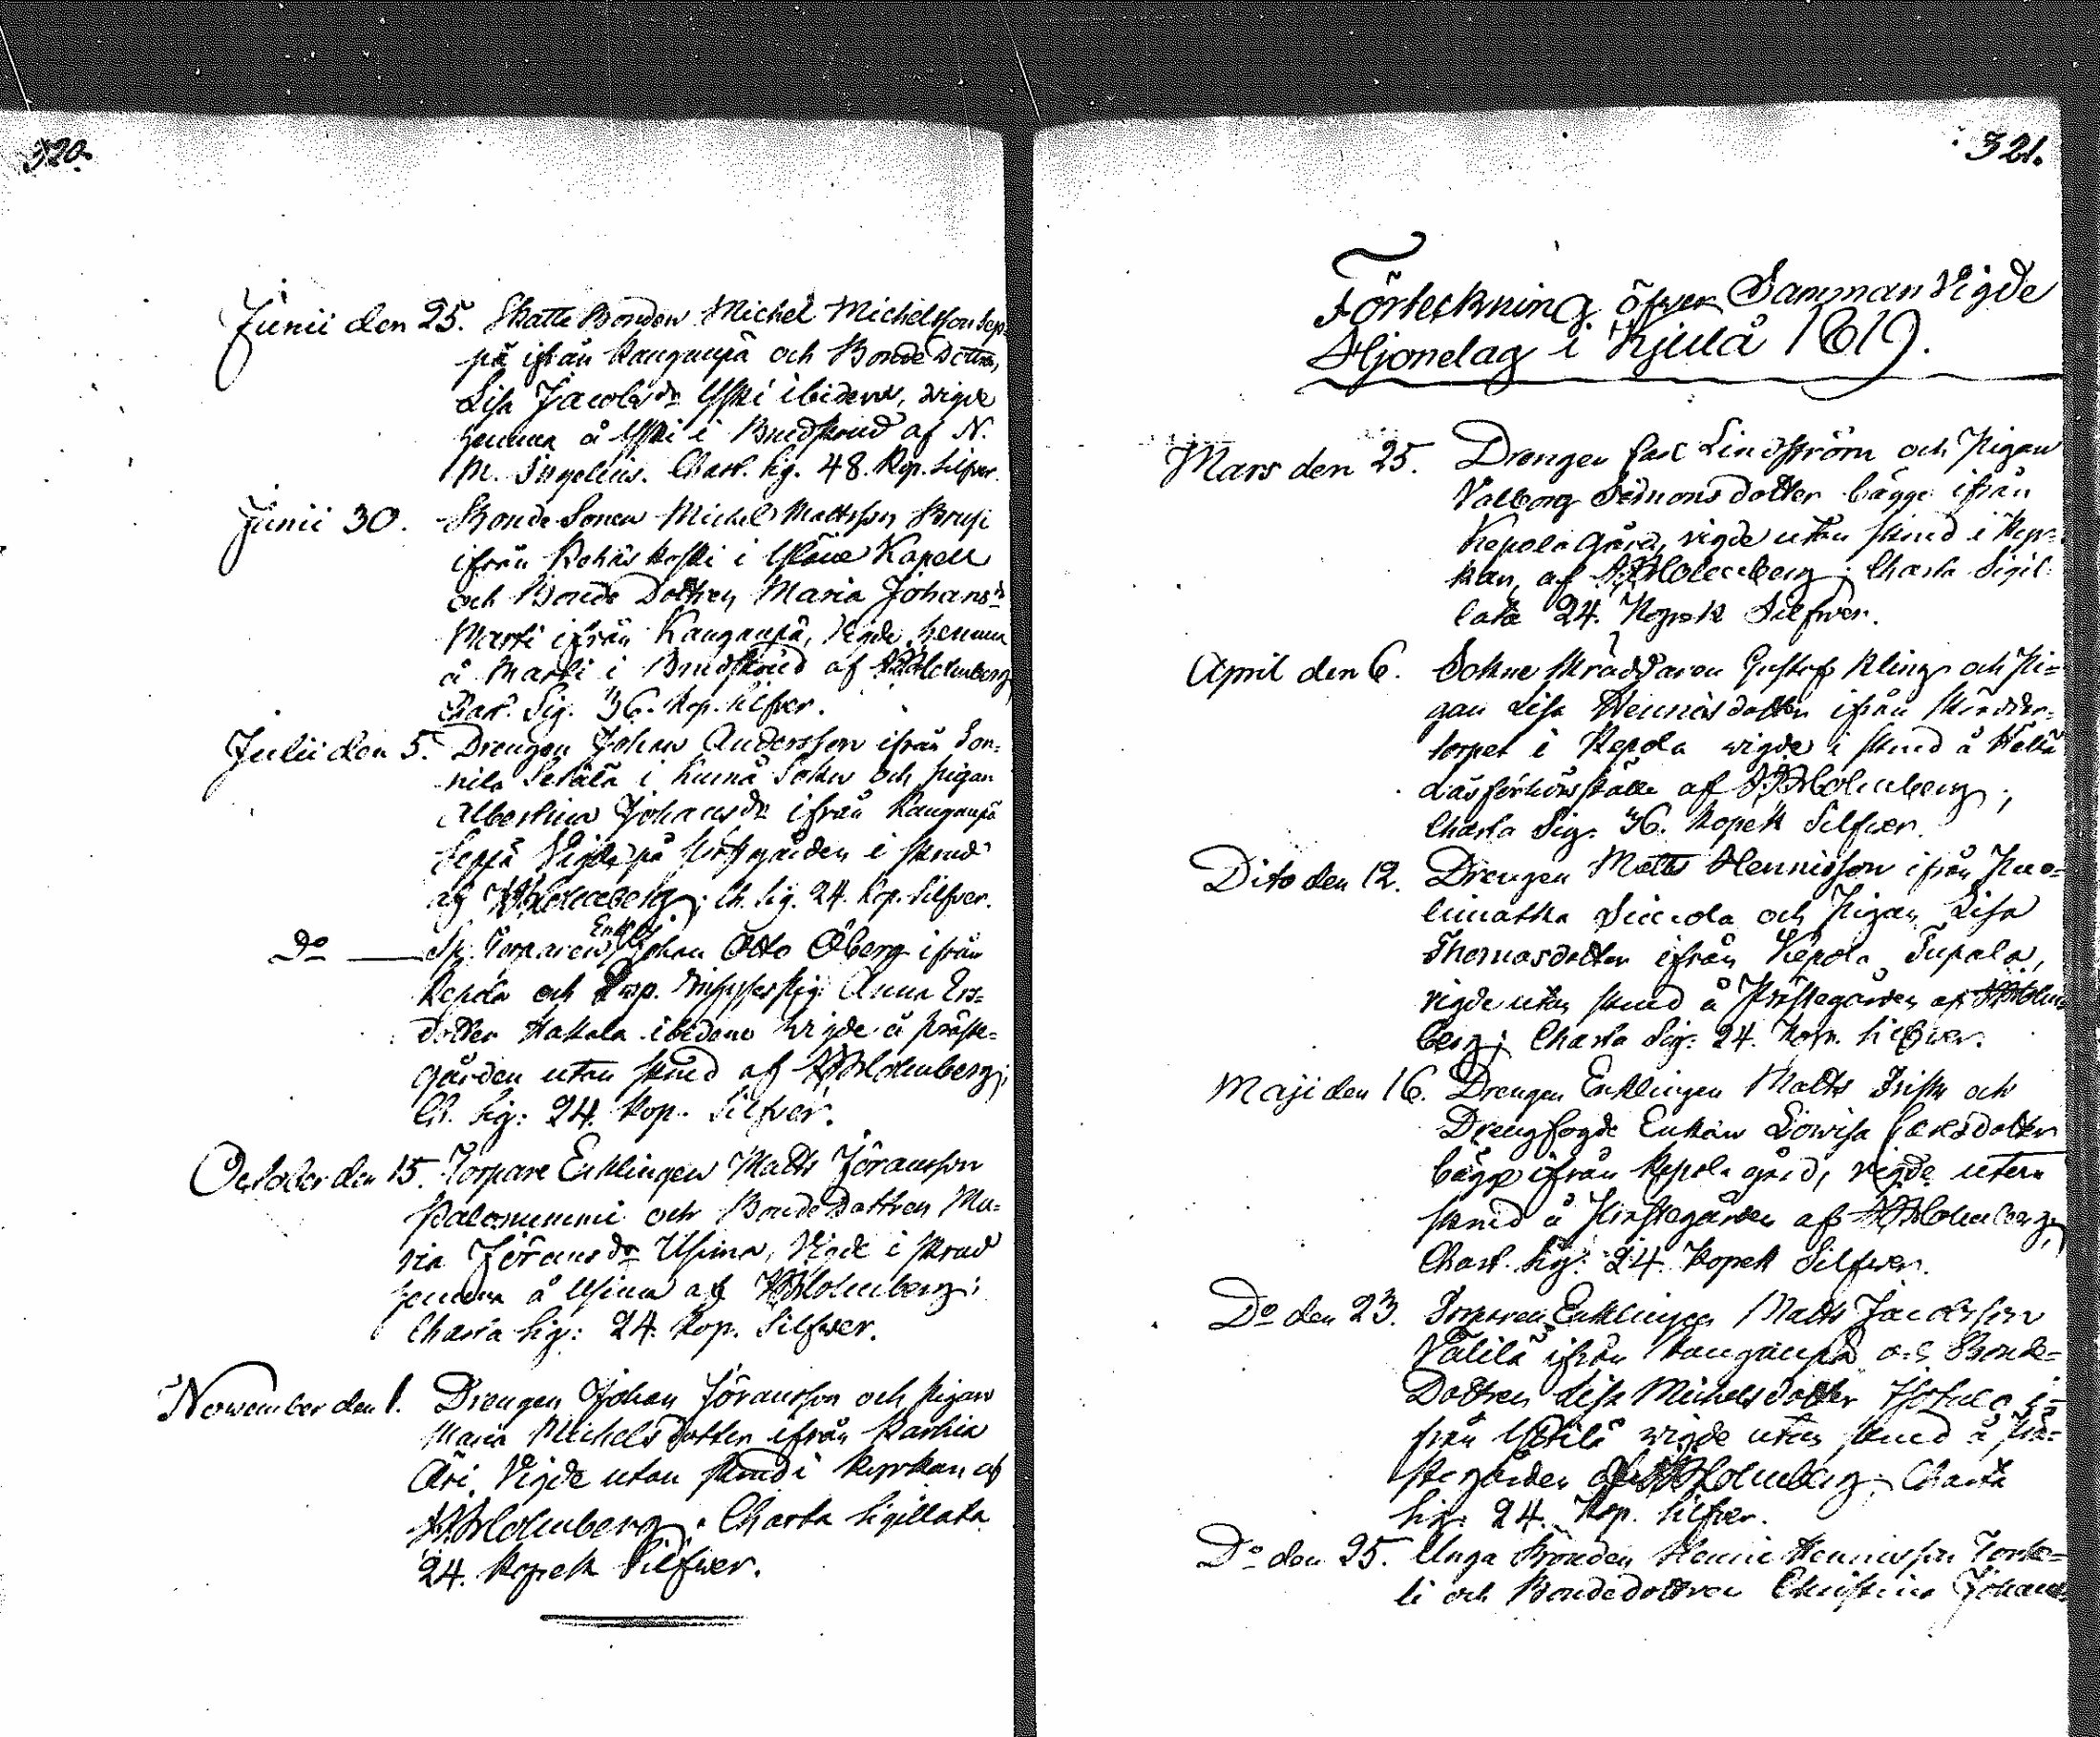 320.
Junii den 25. Skatte Bonden Michel Michelsson Sep-
pä ifrån Kauganpä och Bonde Dottren,
Lisa Jacobsdr Yski ibidem, vigde
hemma å Yski i Brudskrud af N.
M. Ingelius. Chart. Sig. 48. Kop. Silfver.
Junii 30. Bonde Sonen Michel Mattsson Brusi
ifrån Kapell
och Bonde Dottren Maria Johansdr
Marti ifrån Kauganpä, Vigde hemma
å Marti i Brudskrud af Holmberg
Chart. Sig. 36. Kop. Silfver.
Julii den 5. Drengen Johan Andersson ifrån Son-
nila Setälä i Kumå Sokn och Pigan
Albertina Johansdr ifrån Kauganpä
Seppä Vigde på Prestgården i skrud
af Holmberg; Ch. Sig. 24. Kop. Silfver.
Do Enkl.
Torparen Johan Otto Öberg ifrån
Kepola och Anna Ers-
dotter Hakala ibidem vigde å Präste-
gården utan skrud af Holmberg;
Ch. Sig: 24. Kop. Silfver.
October den 15. Torpare Enklingen Matts Jöransson
Palonummi och Bonde Dottren Ma-
ria Jöransdr Uksina, Vigde i skrud
hemma å Uksina af Holmberg;
Charta Sig: 24. Kop. Silfwer.
November den 1. Drengen Johan Jöransson och Pigan
Maria Michelsdotter ifrån Karhia
Äri, Vigde utan skrud i Kyrkan af
Holmberg. Charta Sigillata
24. Kopek Silfwer.
321.
Förteckning öfwer Samman Vigde
Hjonelag i Kjulå 1819.
Mars den 25. Drengen Carl Lindström och Pigan
Valborg Simonsdotter bägge ifrån
Kepola Gård, vigde utan skrud i Kyr-
kan, af Holmberg; Charta Sigil-
lata 24. Kopek Silfwer.
April den 6. Sokne Skräddaren Gustaf Kling och Pi-
gan Lisa Hennisdotter ifrån Skrädder-
torpet i Kepola wigde i skrud å
Läsförhörsställe af Holmberg;
Charta Sig: 36. Kopek Silfwer.
Dito den 12. Drengen Matts Hennisson ifrån Puo-
limatka och Pigan Lisa
Thomasdotter ifrån Kepola Tupala,
vigde utan skrud å Prästegården af Holm-
berg; Charta Sig: 24. Kop. Silfwer.
Maji den 16. Drengen Enklingen Matts Frisk och
Drengfogde Enkan Lowisa Carlsdotter
bägge ifrån Kepola gård, vigde utan
skrud å Prästegården af Holmberg;
Chart. Sig: 24. Kopek Silfwer.
Do den 23. Torparen Enklingen Matts Jacobsson
Välilä ifrån Kauganpä och Bonde-
Dottren Lisa Michelsdotter i-
från wigde utan skrud å Prä-
stegården af Holmberg; Charta
Sig: 24. Kop. Silfver.
Do den 25. Unga Bonden Henric Henricsson Tork-
ki och Bondedottren Christina Johans-